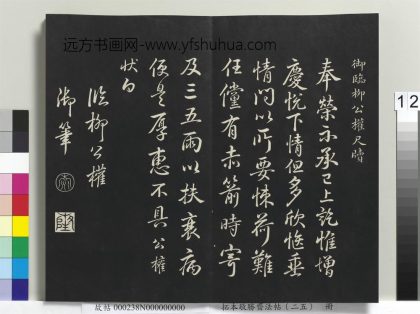 远方书画网-www.yfshuhua.com
御臨柳公權尺牘
奉榮示承已上訖惟增
慶悅下情但多欣惬垂
情問以所要悚荷難
任儻有赤箭時寄
及三五兩以扶衰病
便是厚惠不具公權
狀白
臨柳公權
御筆
乾
隆
12
故帖 000238N000000000
拓本敬勝齋法帖(二五) 冊